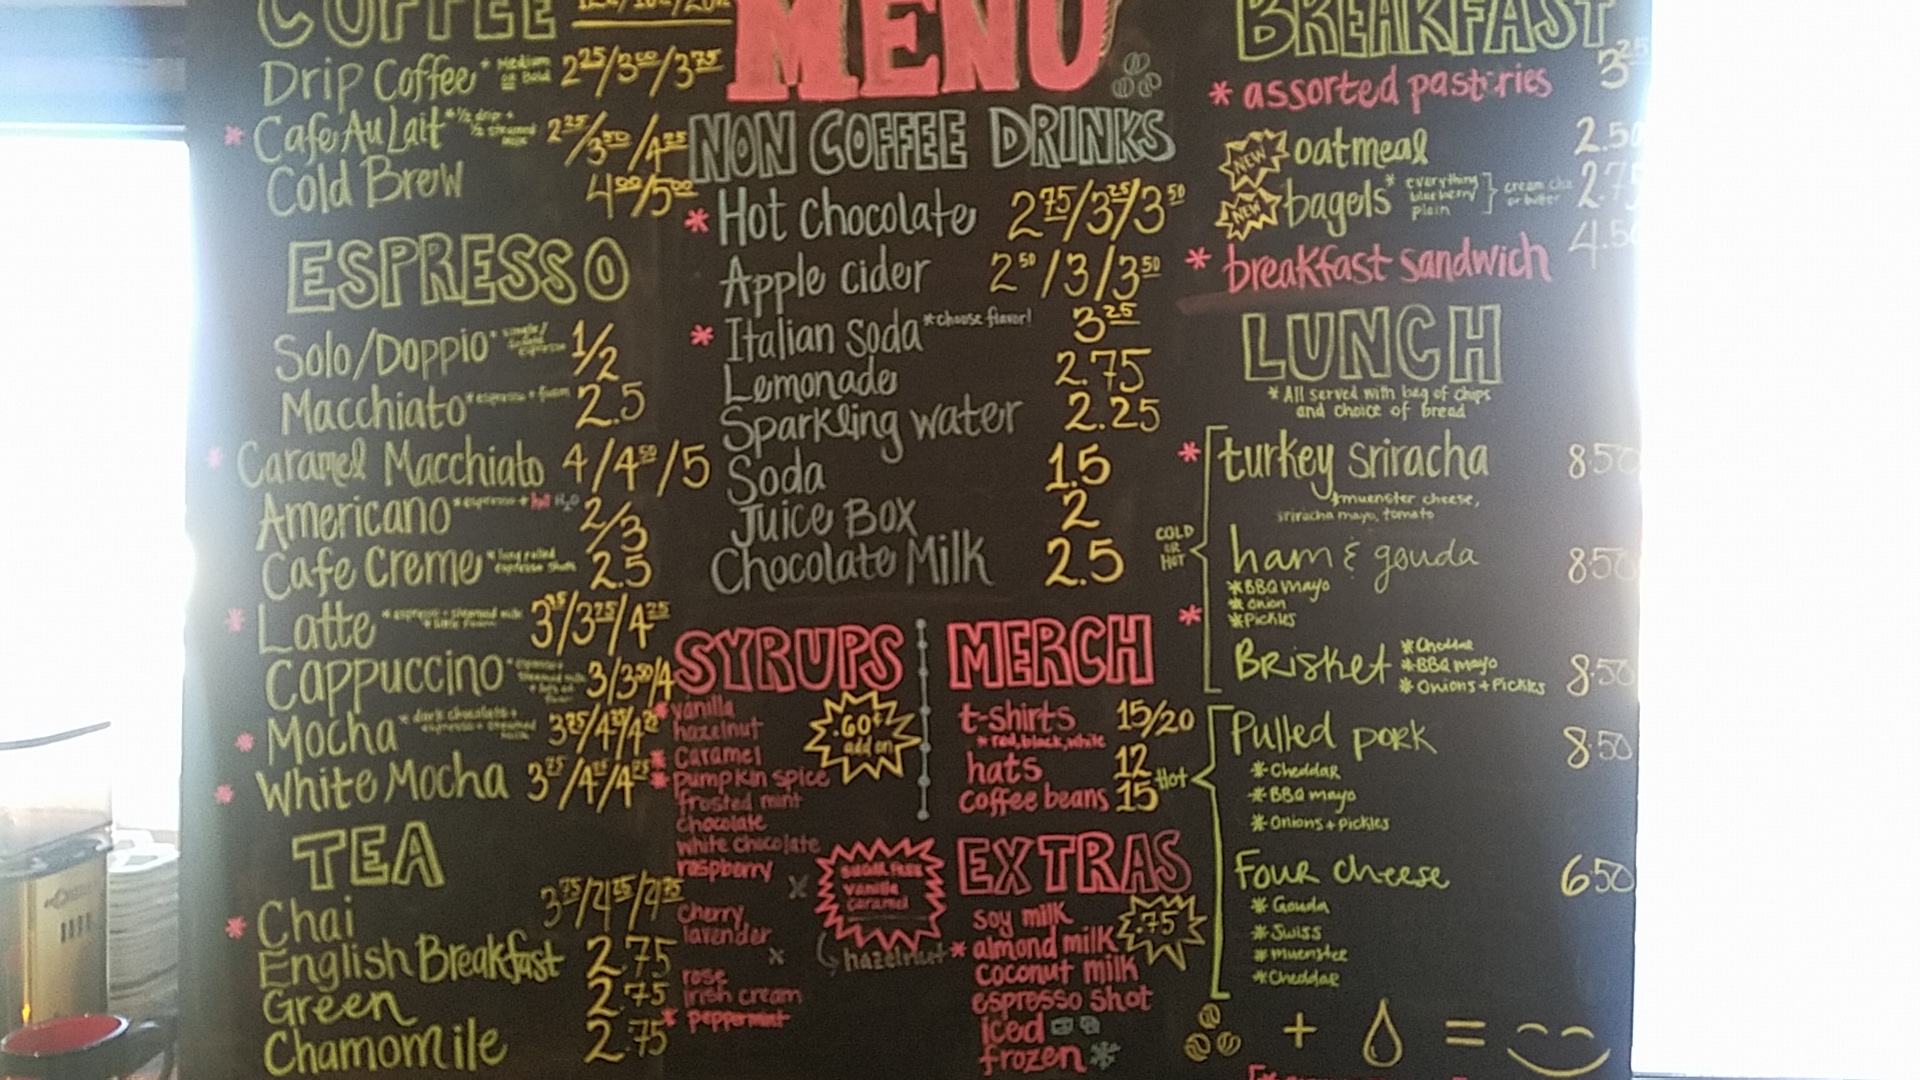 COFFEE
Drip Coffee * Medium or Bold 2.25/3.00/3.75
* Cafe Au Lait * 1/2 drip + 1/2 steamed milk
Cold Brew 4.00/5.00
ESPRESSO
Solo/Doppio 1/2
Macchiato * espresso + foam 2.5
* Caramel Macchiato 4/4.50/5
Americano * espresso + hot H2O 2/3
Cafe Creme * long pulled espresso shots 2.5
* Latte * espresso + steamed milk + little foam
Cappuccino 3/3.50/4
* Mocha * dark chocolate + espresso + steamed milk
* White Mocha
TEA
* Chai
English Breakfast 2.75
Green 2.75
Chamomile 2.75
MENU
NON COFFEE DRINKS
* Hot Chocolate 2.75/3.25/3.50
Apple Cider 2.50/3/3.50
* Italian Soda * choose flavor! 3.25
Lemonade 2.75
Sparkling water 2.25
Soda 1.5
Juice Box 2
Chocolate Milk 2.5
SYRUPS
.60¢ add on
* vanilla
hazelnut
* Caramel
* Pumpkin spice
frosted mint
chocolate
white chocolate
raspberry
Cherry
lavender
rose
Irish cream
* peppermint
SUGAR FREE
vanilla
Caramel
hazelnut
MERCH
t-shirts 15/20
* red, black, white
hats 12
coffee beans 15
EXTRAS
.75
soy milk
* almond milk
coconut milk
espresso shot
iced
frozen
BREAKFAST
* assorted pastries 3.25
NEW oatmeal 2.50
NEW bagels * everything blueberry plain } cream che or butter 2.75
* breakfast sandwich 4.50
LUNCH
* All served with bag of chips
and choice of bread
COLD OR HOT
* turkey sriracha 8.50
* muenster cheese,
sriracha mayo, tomato
ham & gouda 8.50
* BBQ mayo
* Onion
* Pickles
* Brisket 8.50
* Cheddar
* BBQ mayo
* Onions + Pickles
Hot
Pulled pork 8.50
* Cheddar
* BBQ mayo
* Onions + Pickles
Four cheese 6.50
* Gouda
* Swiss
* muenster
* Cheddar
+ =